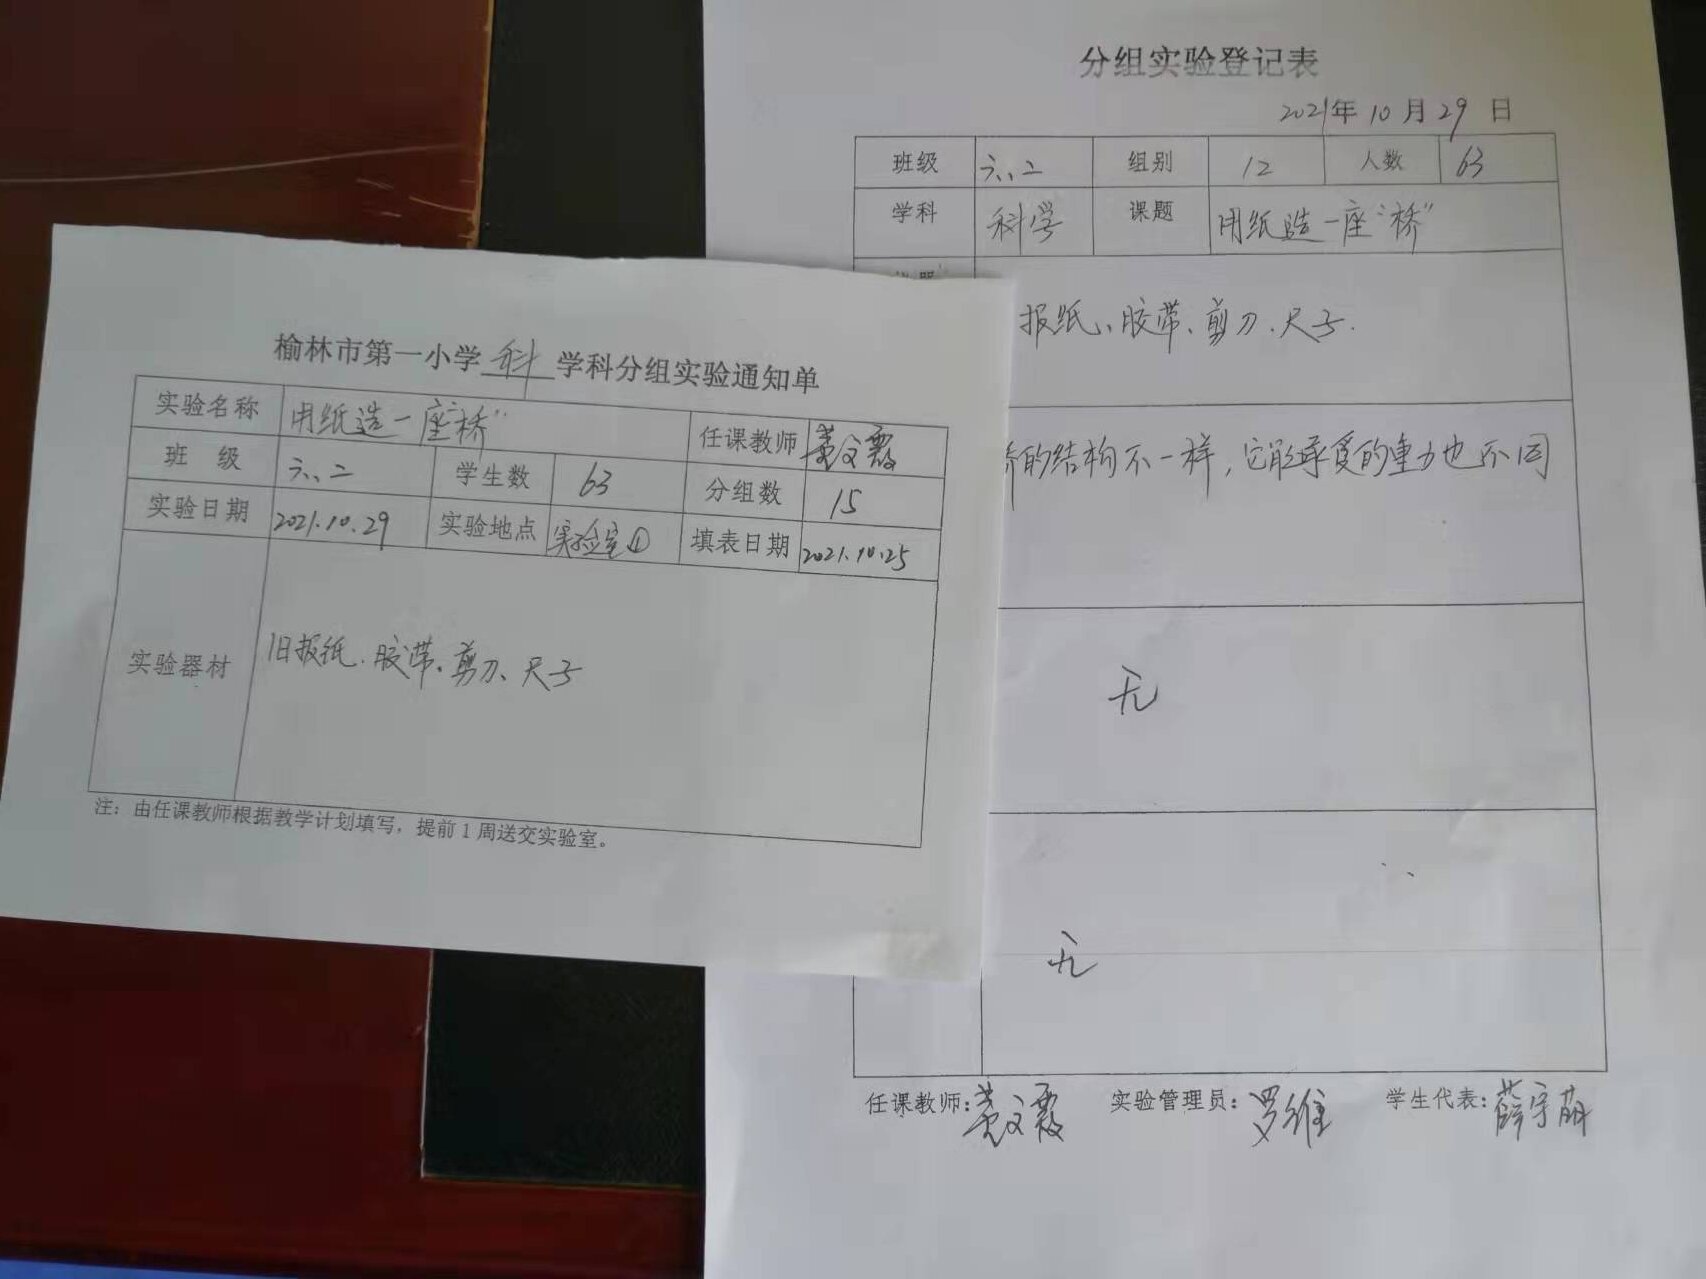 榆林市第一小学 科 学科分组实验通知单
实验名称 用纸造一座“桥” 任课教师 文霞
班 级 六、二 学生数 63 分组数 15
实验日期 2021.10.29 实验地点 实验室① 填表日期 2021.10.25
实验器材 旧报纸、胶带、剪刀、尺子
注：由任课教师根据教学计划填写，提前1周送交实验室。
分组实验登记表
2021年10月29日
班级 六、二 组别 12 人数 63
学科 科学 课题 用纸造一座“桥”
报纸、胶带、剪刀、尺子.
的结构不一样，它能承受的重力也不同
无
无
任课教师：文霞 实验管理员：罗维 学生代表：薛宇